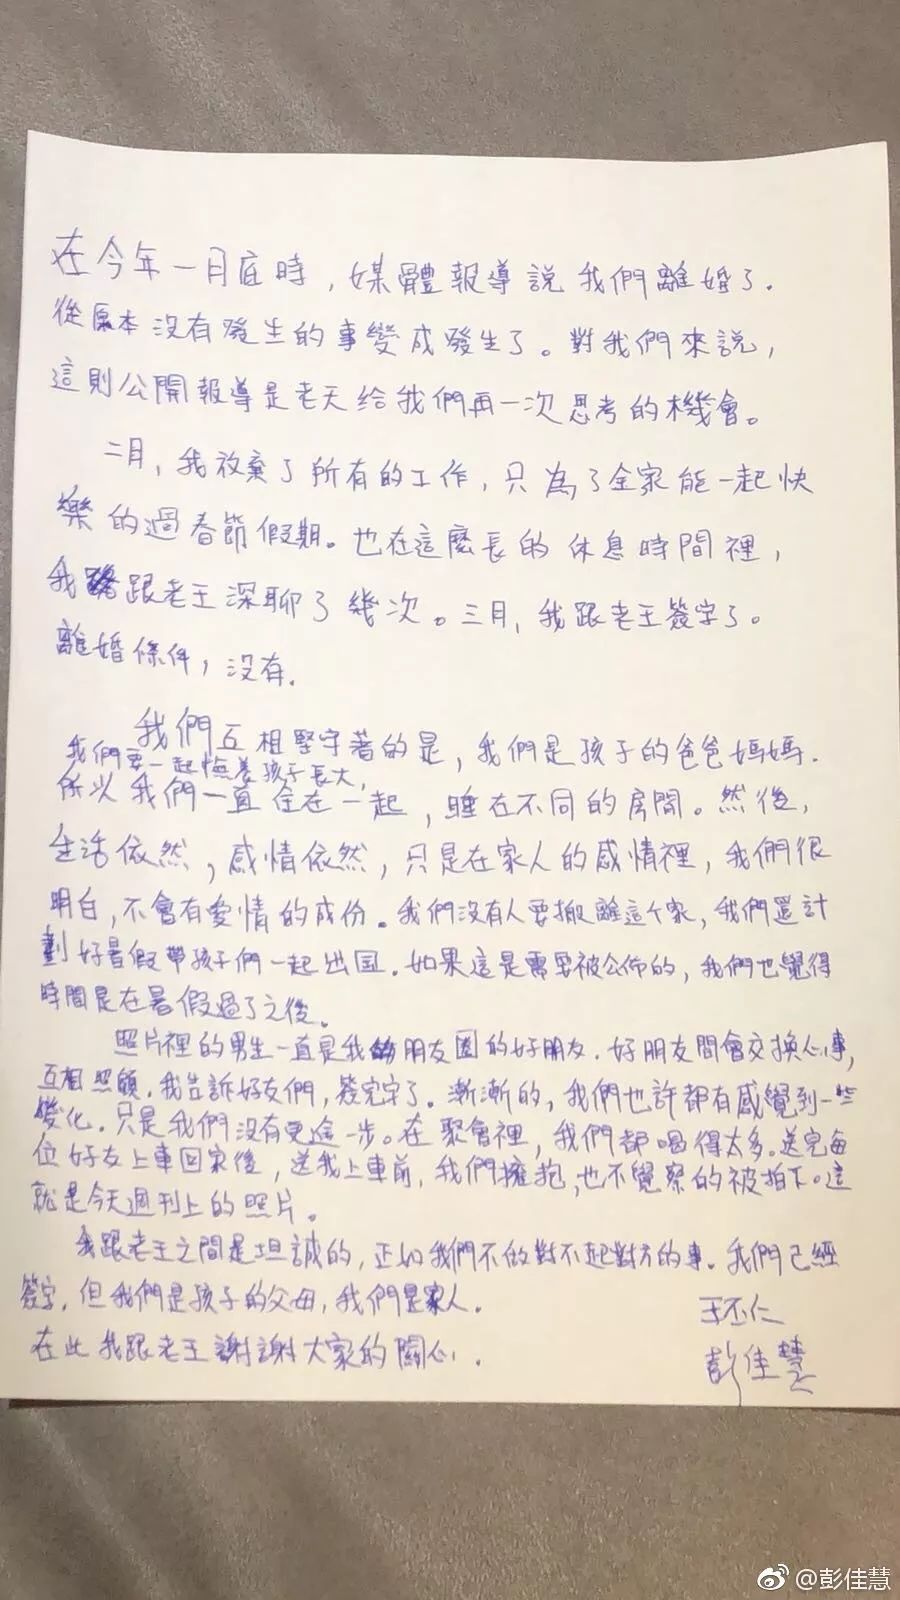 在今年一月底時，媒體報導說我們離婚了.
從原本沒有發生的事變成發生了。對我們來說，
這則公開報導是老天給我們再一次思考的機會。
二月，我放棄了所有的工作，只為了全家能一起快
樂的過春節假期。也在這麼長的休息時間裡，
我跟老王深聊了幾次。三月，我跟老王簽字了。
離婚條件，沒有.
我們互相堅守著的是，我們是孩子的爸爸媽媽.
我們要一起撫養孩子長大，
所以我們一直住在一起，睡在不同的房間。然後，
生活依然，感情依然，只是在家人的感情裡，我們很
明白，不會有愛情的成份。我們沒有人要搬離這个家，我們還計
劃好暑假帶孩子們一起出国.如果這是需要被公佈的，我們也覺得
時間是在暑假過了之後。
照片裡的男生一直是我朋友圈的好朋友.好朋友間會交換心事，
互相照顧.我告訴好友們，簽完字了.漸漸的，我們也許都有感覺到一些
變化.只是我們沒有更進一步。在聚會裡，我們都喝得太多.送完每
位好友上車回家後，送我上車前，我們擁抱，也不覺察的被拍下。這
就是今天週刊上的照片。
我跟老王之間是坦誠的，正如我們不做對不起對方的事.我們已經
簽字，但我們是孩子的父母，我們是家人.
在此我跟老王謝謝大家的關心.
王丕仁
彭佳慧
@彭佳慧